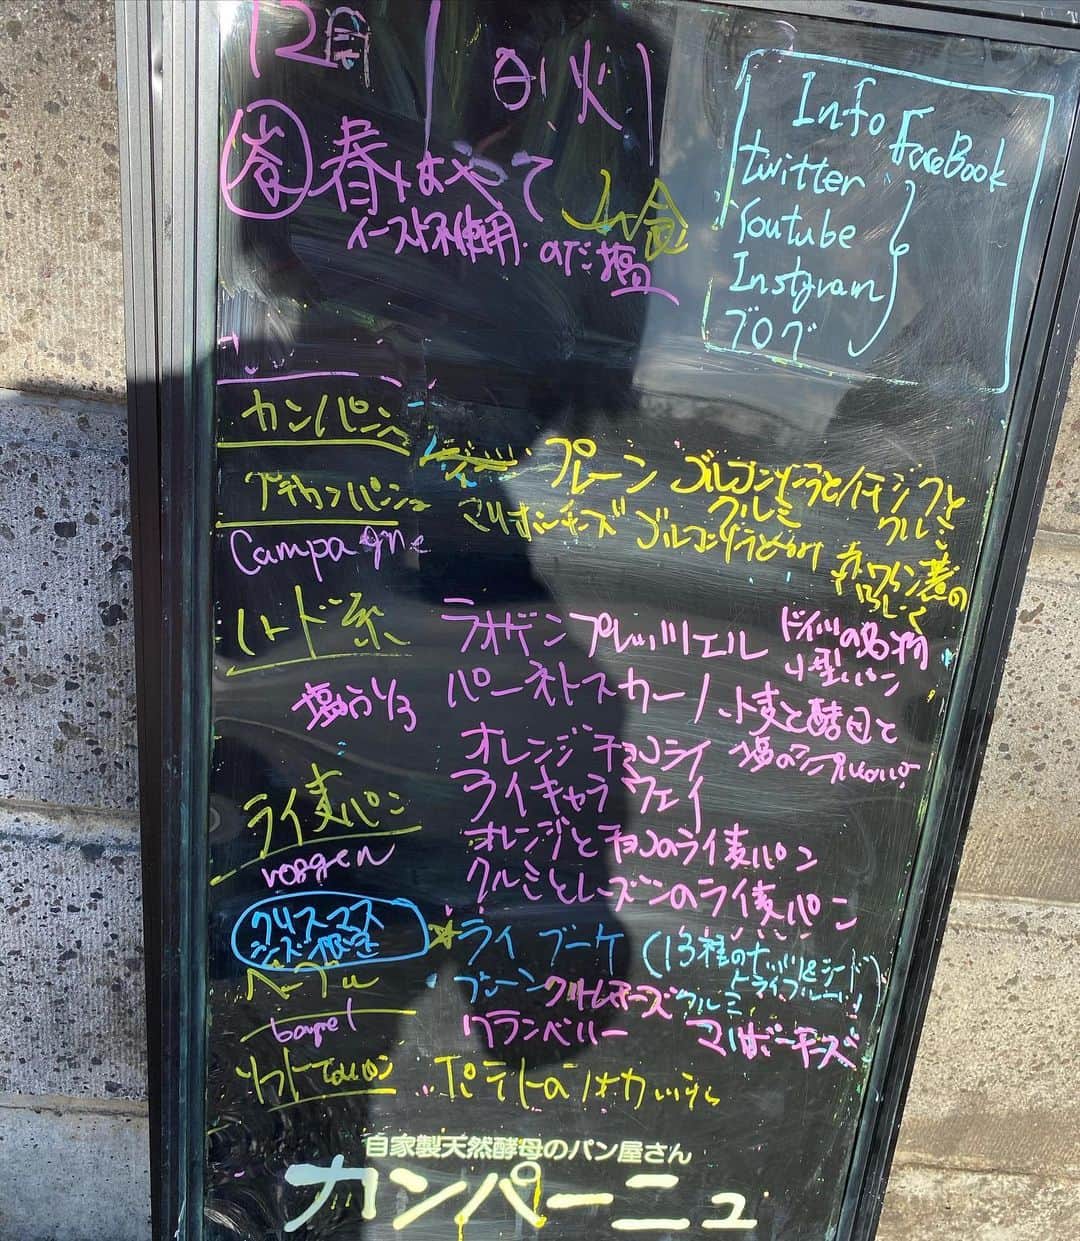 12月 日 火
春はやて
イースト不使用 のだ塩
Info FaceBook
twitter
Youtube
Instgram
ブログ
カンパーニュ
プチカンパーニュ プレーン ゴルゴンゾーラとイチジクとクルミ
Campagne マリボーチーズ 赤ワイン煮の
ハード系 ラオゲンプレッツエル ドイツの名物
小型パン
塩分1/3 パーネトスカーノ 小麦と酵母と
塩のシンプル
オレンジチョコライ
ライキャラウェイ
ライ麦パン オレンジとチョコのライ麦パン
roggen クルミとレーズンのライ麦パン
クリスマス
シーズン限定 ☆ライブーケ (13種のナッツ&シード
ドライフルーツ)
ベーグル プレーン クリームチーズ クルミ
bagel クランベリー マリボーチーズ
ソフト ポテト
自家製天然酵母のパン屋さん
カンパーニュ